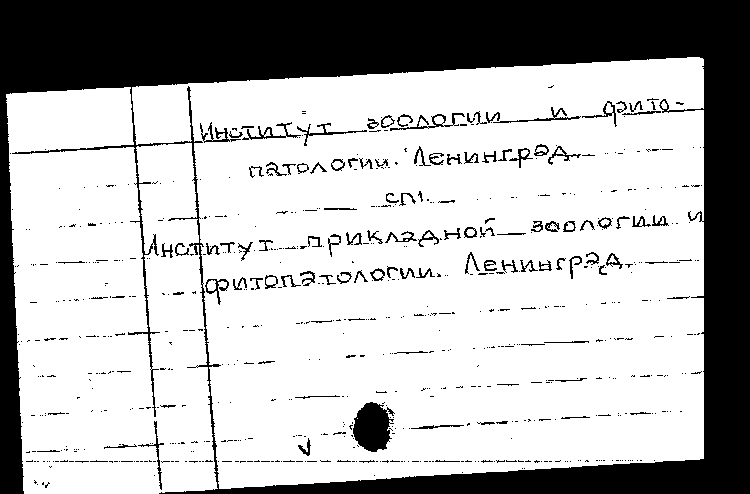 Институт зоологии и фито-
патологии. Ленинград.
см.
Институт прикладной зоологии и
фитопатологии. Ленинград.